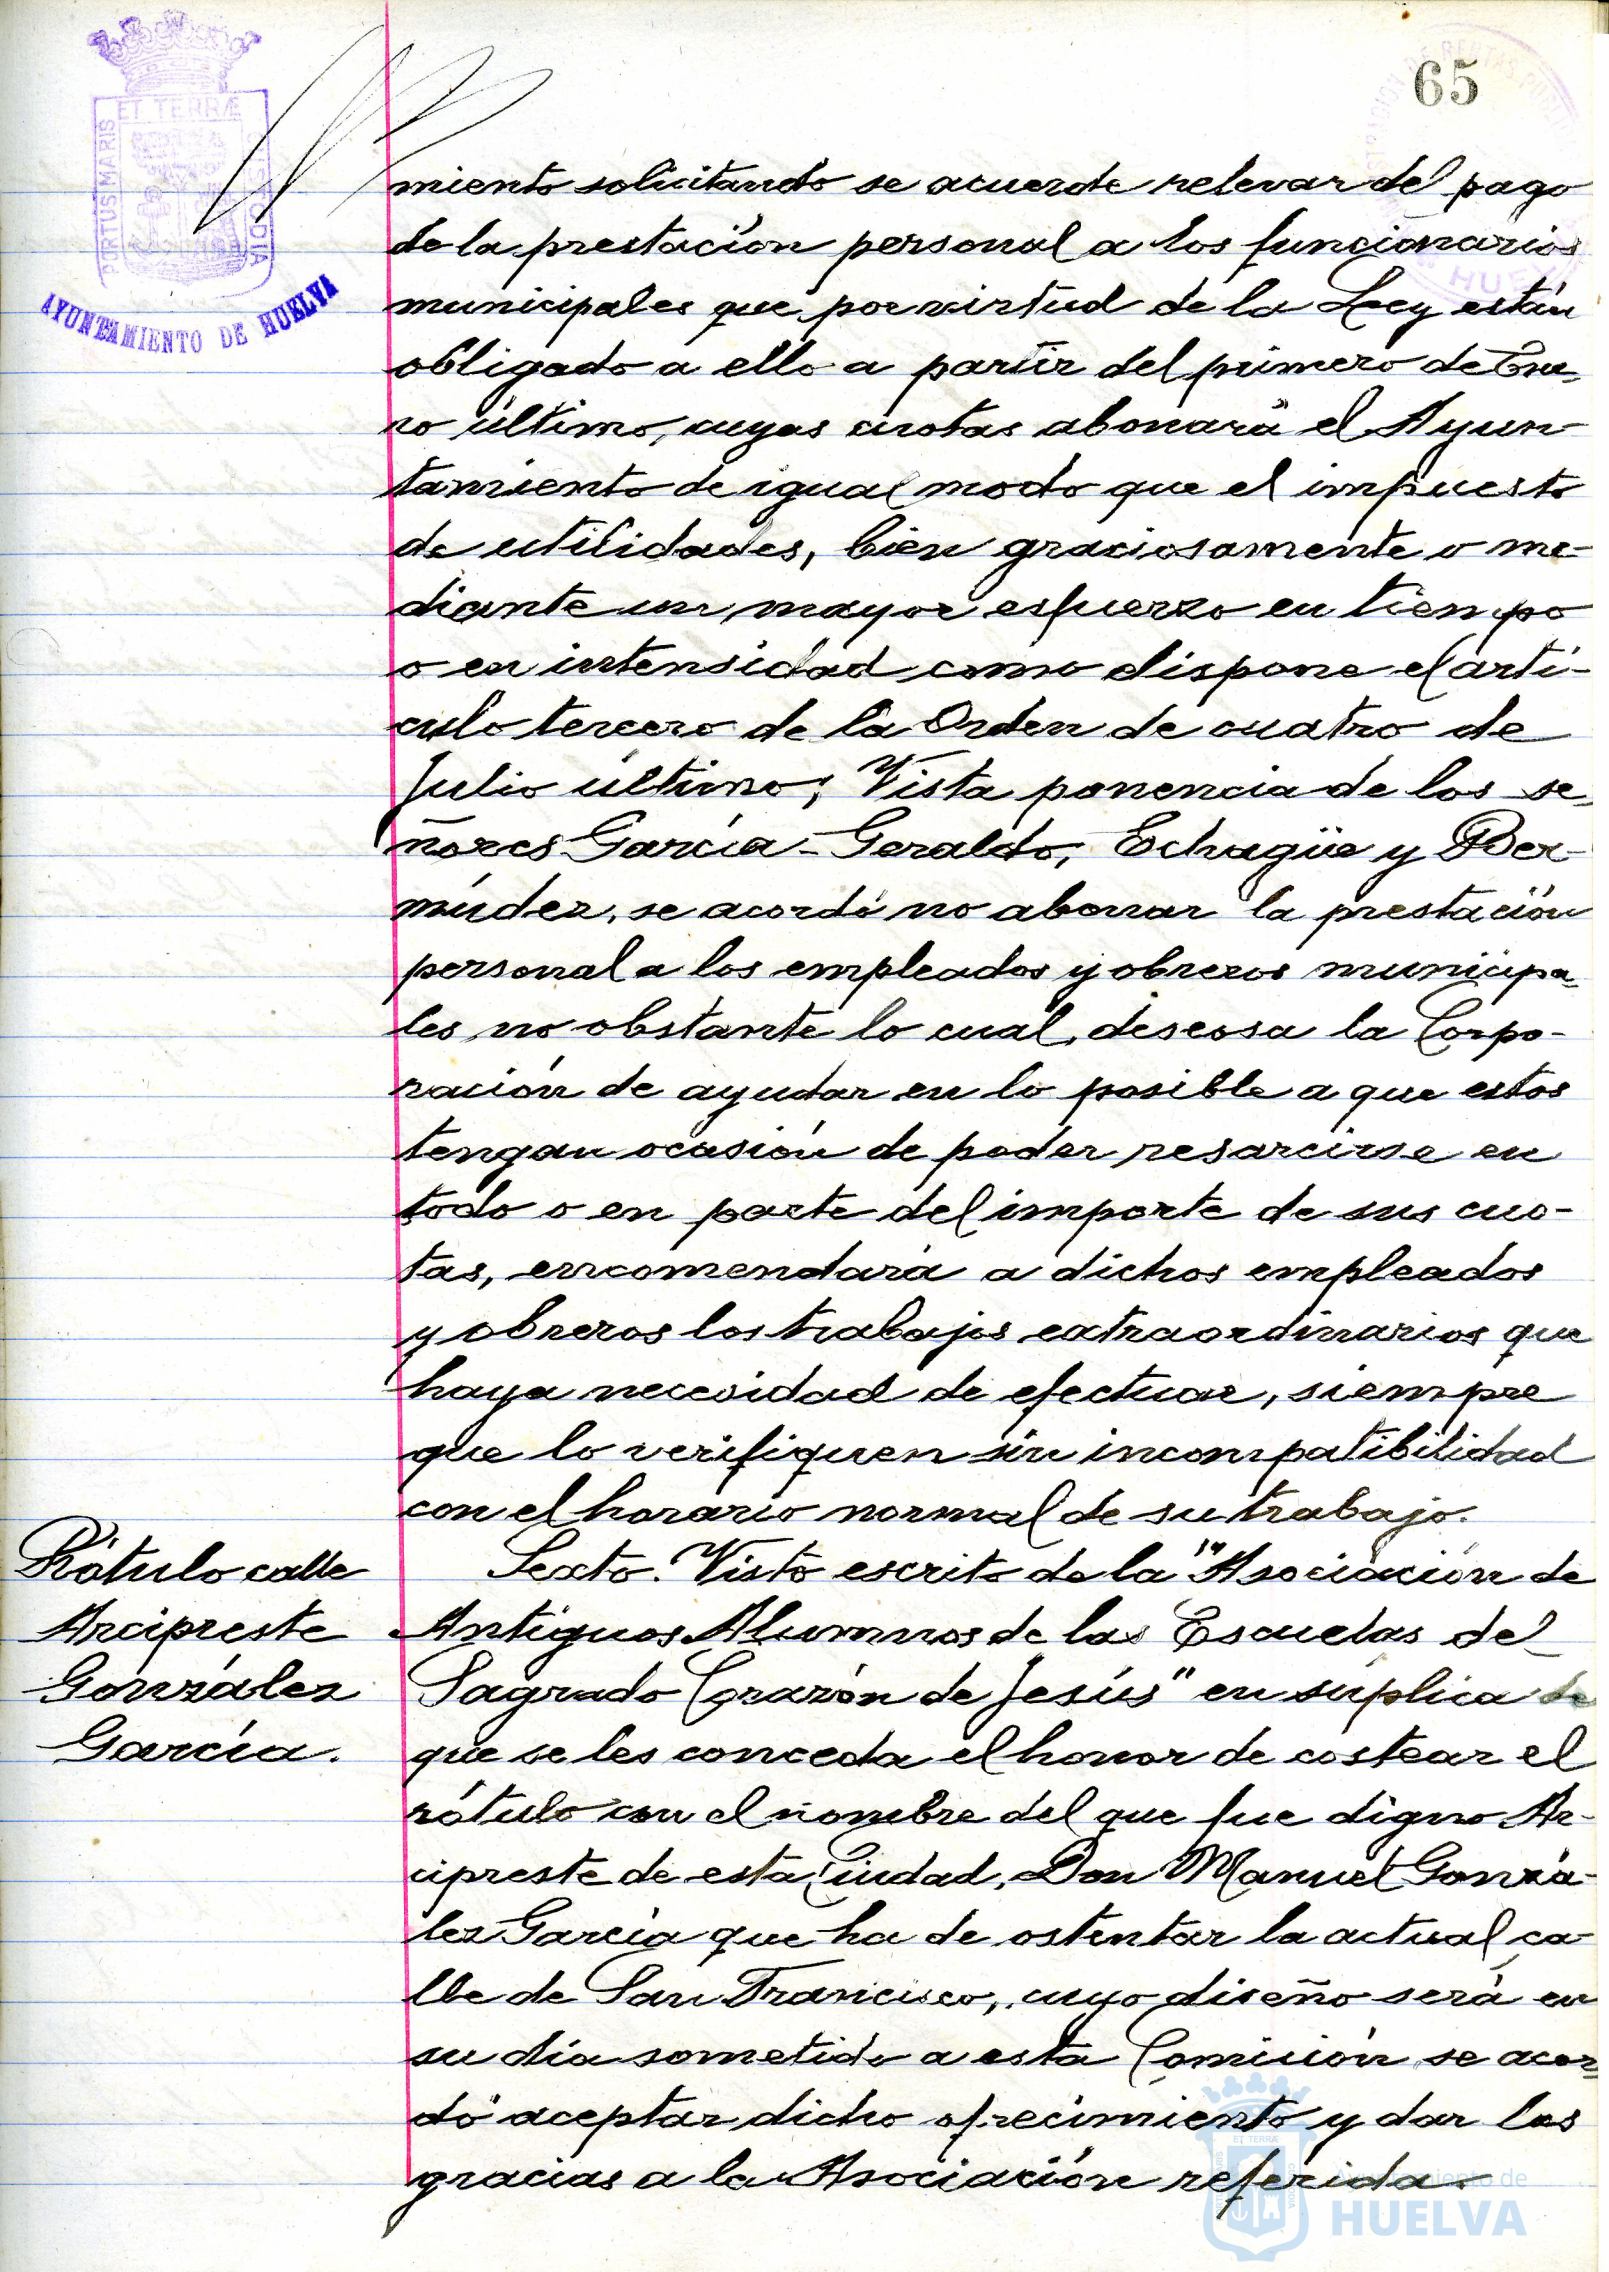 65
ET TERRÆ
PORTUS MARIS
CUSTODIA
AYUNTAMIENTO DE HUELVA
miento solicitando se acuerde relevar del pago
de la prestación personal a los funcionarios
municipales que por virtud de la Ley están
obligado a ello a partir del primero de Ene-
ro último, cuyas cuotas abonará el Ayun-
tamiento de igual modo que el impuesto
de utilidades, bien graciosamente o me-
diante un mayor esfuerzo en tiempo
o en intensidad como dispone el artí-
culo tercero de la Orden de cuatro de
Julio último; Vista ponencia de los se-
ñores García-Geraldo, Echagüe y Ber-
múdez, se acordó no abonar la prestación
personal a los empleados y obreros municipa-
les no obstante lo cual, deseosa la Corpo-
ración de ayudar en lo posible a que estos
tengan ocasión de poder resarcirse en
todo o en parte del importe de sus cuo-
tas, encomendará a dichos empleados
y obreros los trabajos extraordinarios que
haya necesidad de efectuar, siempre
que lo verifiquen sin incompatibilidad
con el horario normal de su trabajo.
Rótulo calle
Arcipreste
González
García.
Sexto. Visto escrito de la "Asociación de
Antiguos Alumnos de las Escuelas del
Sagrado Corazón de Jesús" en súplica de
que se les conceda el honor de costear el
rótulo con el nombre del que fue digno Ar-
cipreste de esta Ciudad, Don Manuel Gonzá-
lez García que ha de ostentar la actual ca-
lle de San Francisco, cuyo diseño será en
su día sometido a esta Comisión, se acor-
dó aceptar dicho ofrecimiento y dar las
gracias a la Asociación referida.
Ayuntamiento de
HUELVA